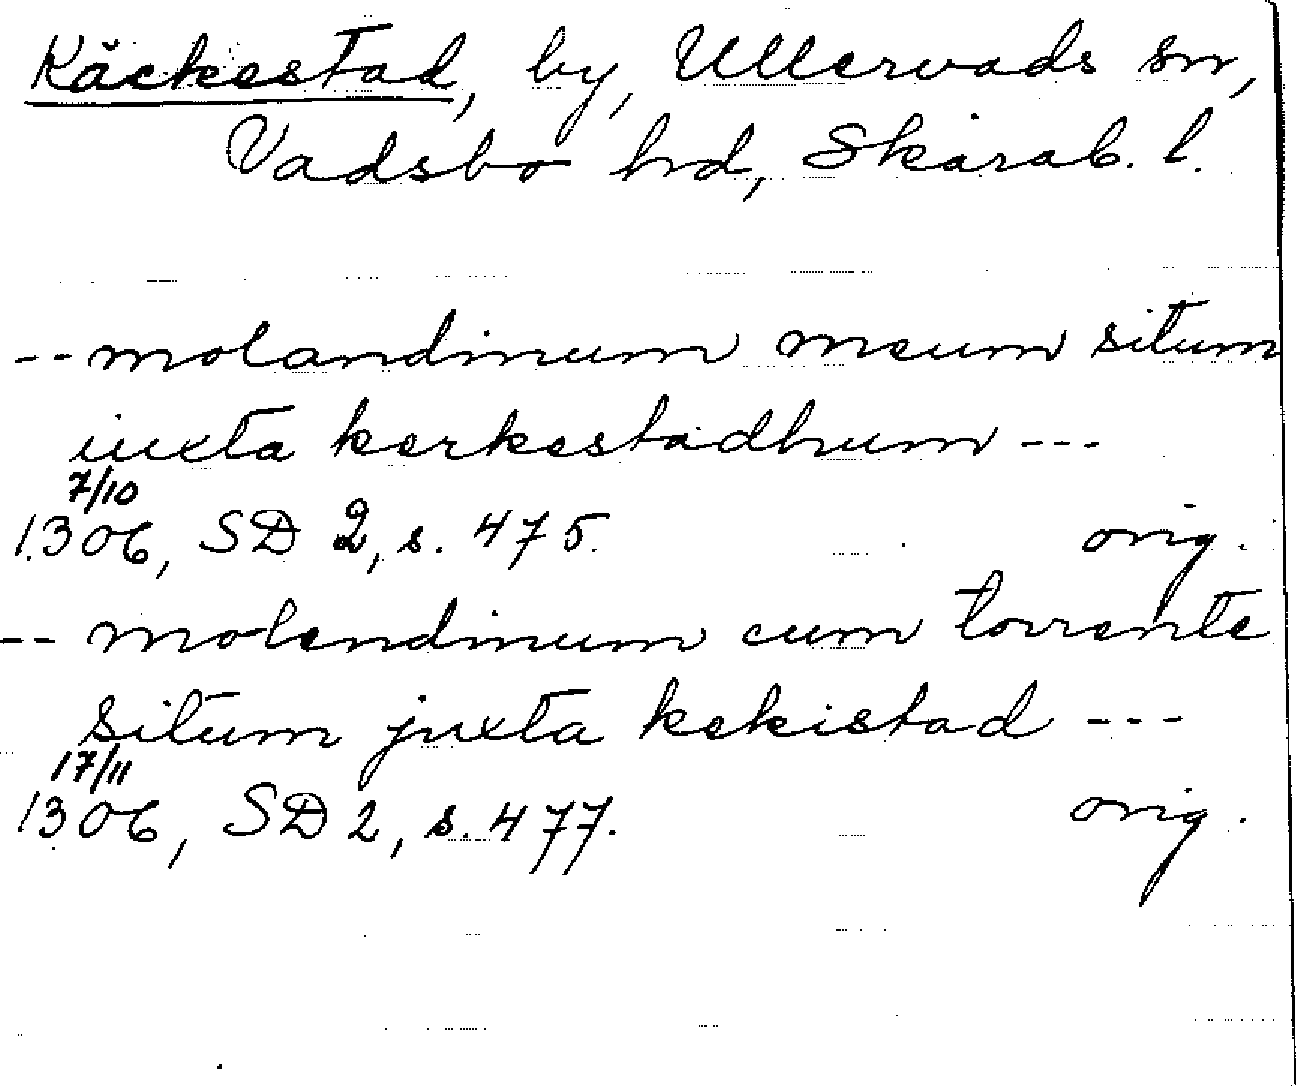 Käckestad, by, Ullervads sn,
Vadsbo hd, Skarab. l.
-- molandinum meum situm
iuxta kerkestadhum ---
7/10
1306, SD 2, s. 475. orig.
-- molendinum cum torrente
situm juxta kekistad ---
17/11
1306, SD 2, s. 477. orig.